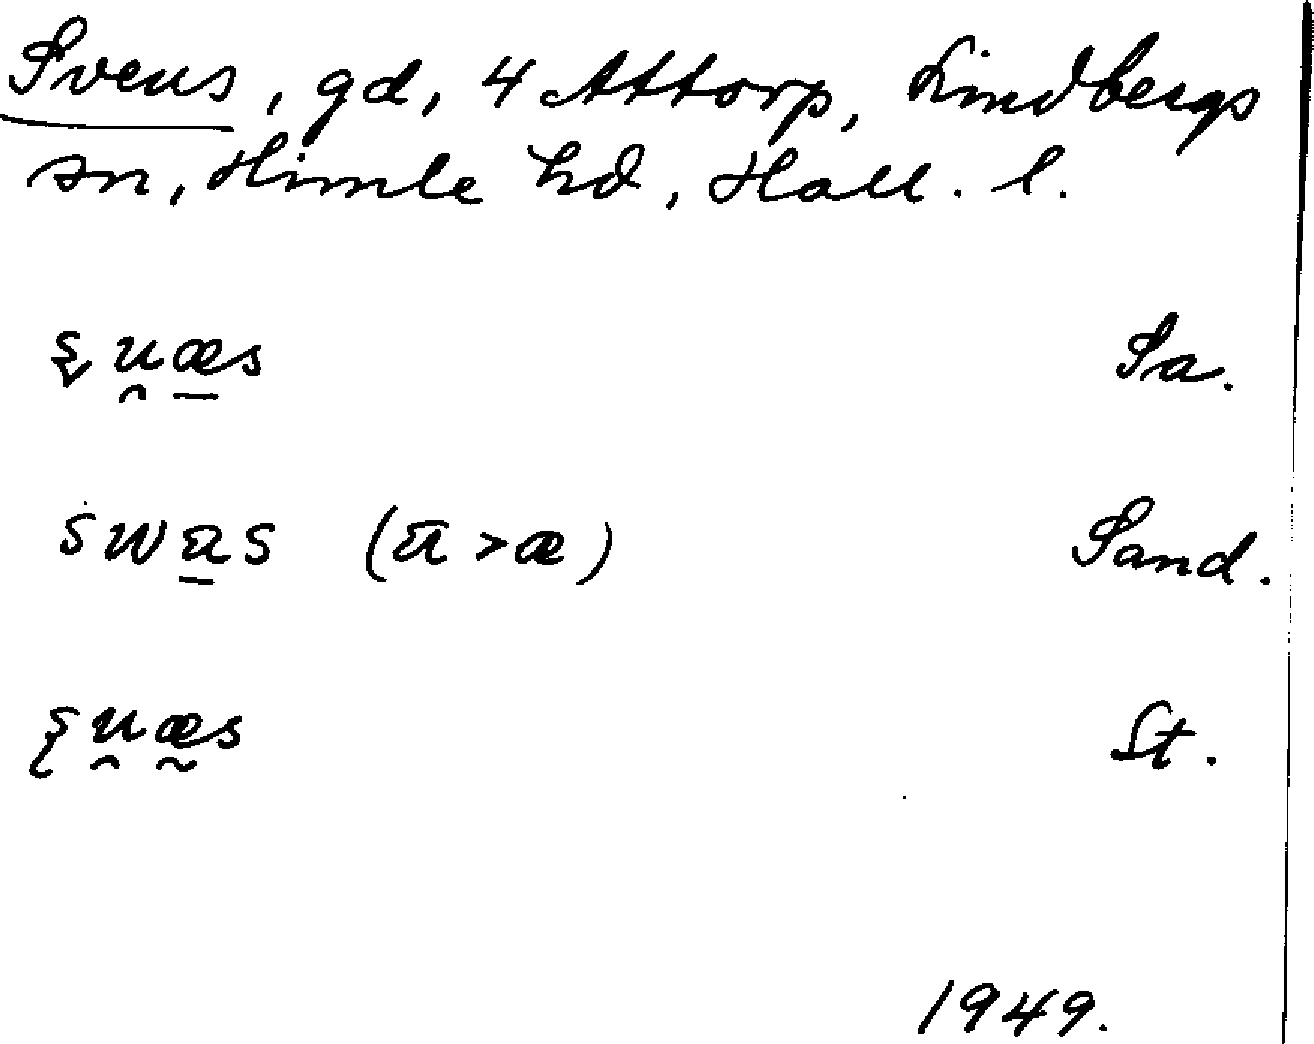 Svens, gd, 4 Attorp, Lindbergs
sn, Himle hd, Hall. l.
Sa.
swas (a > æ) Sand.
St.
1949.